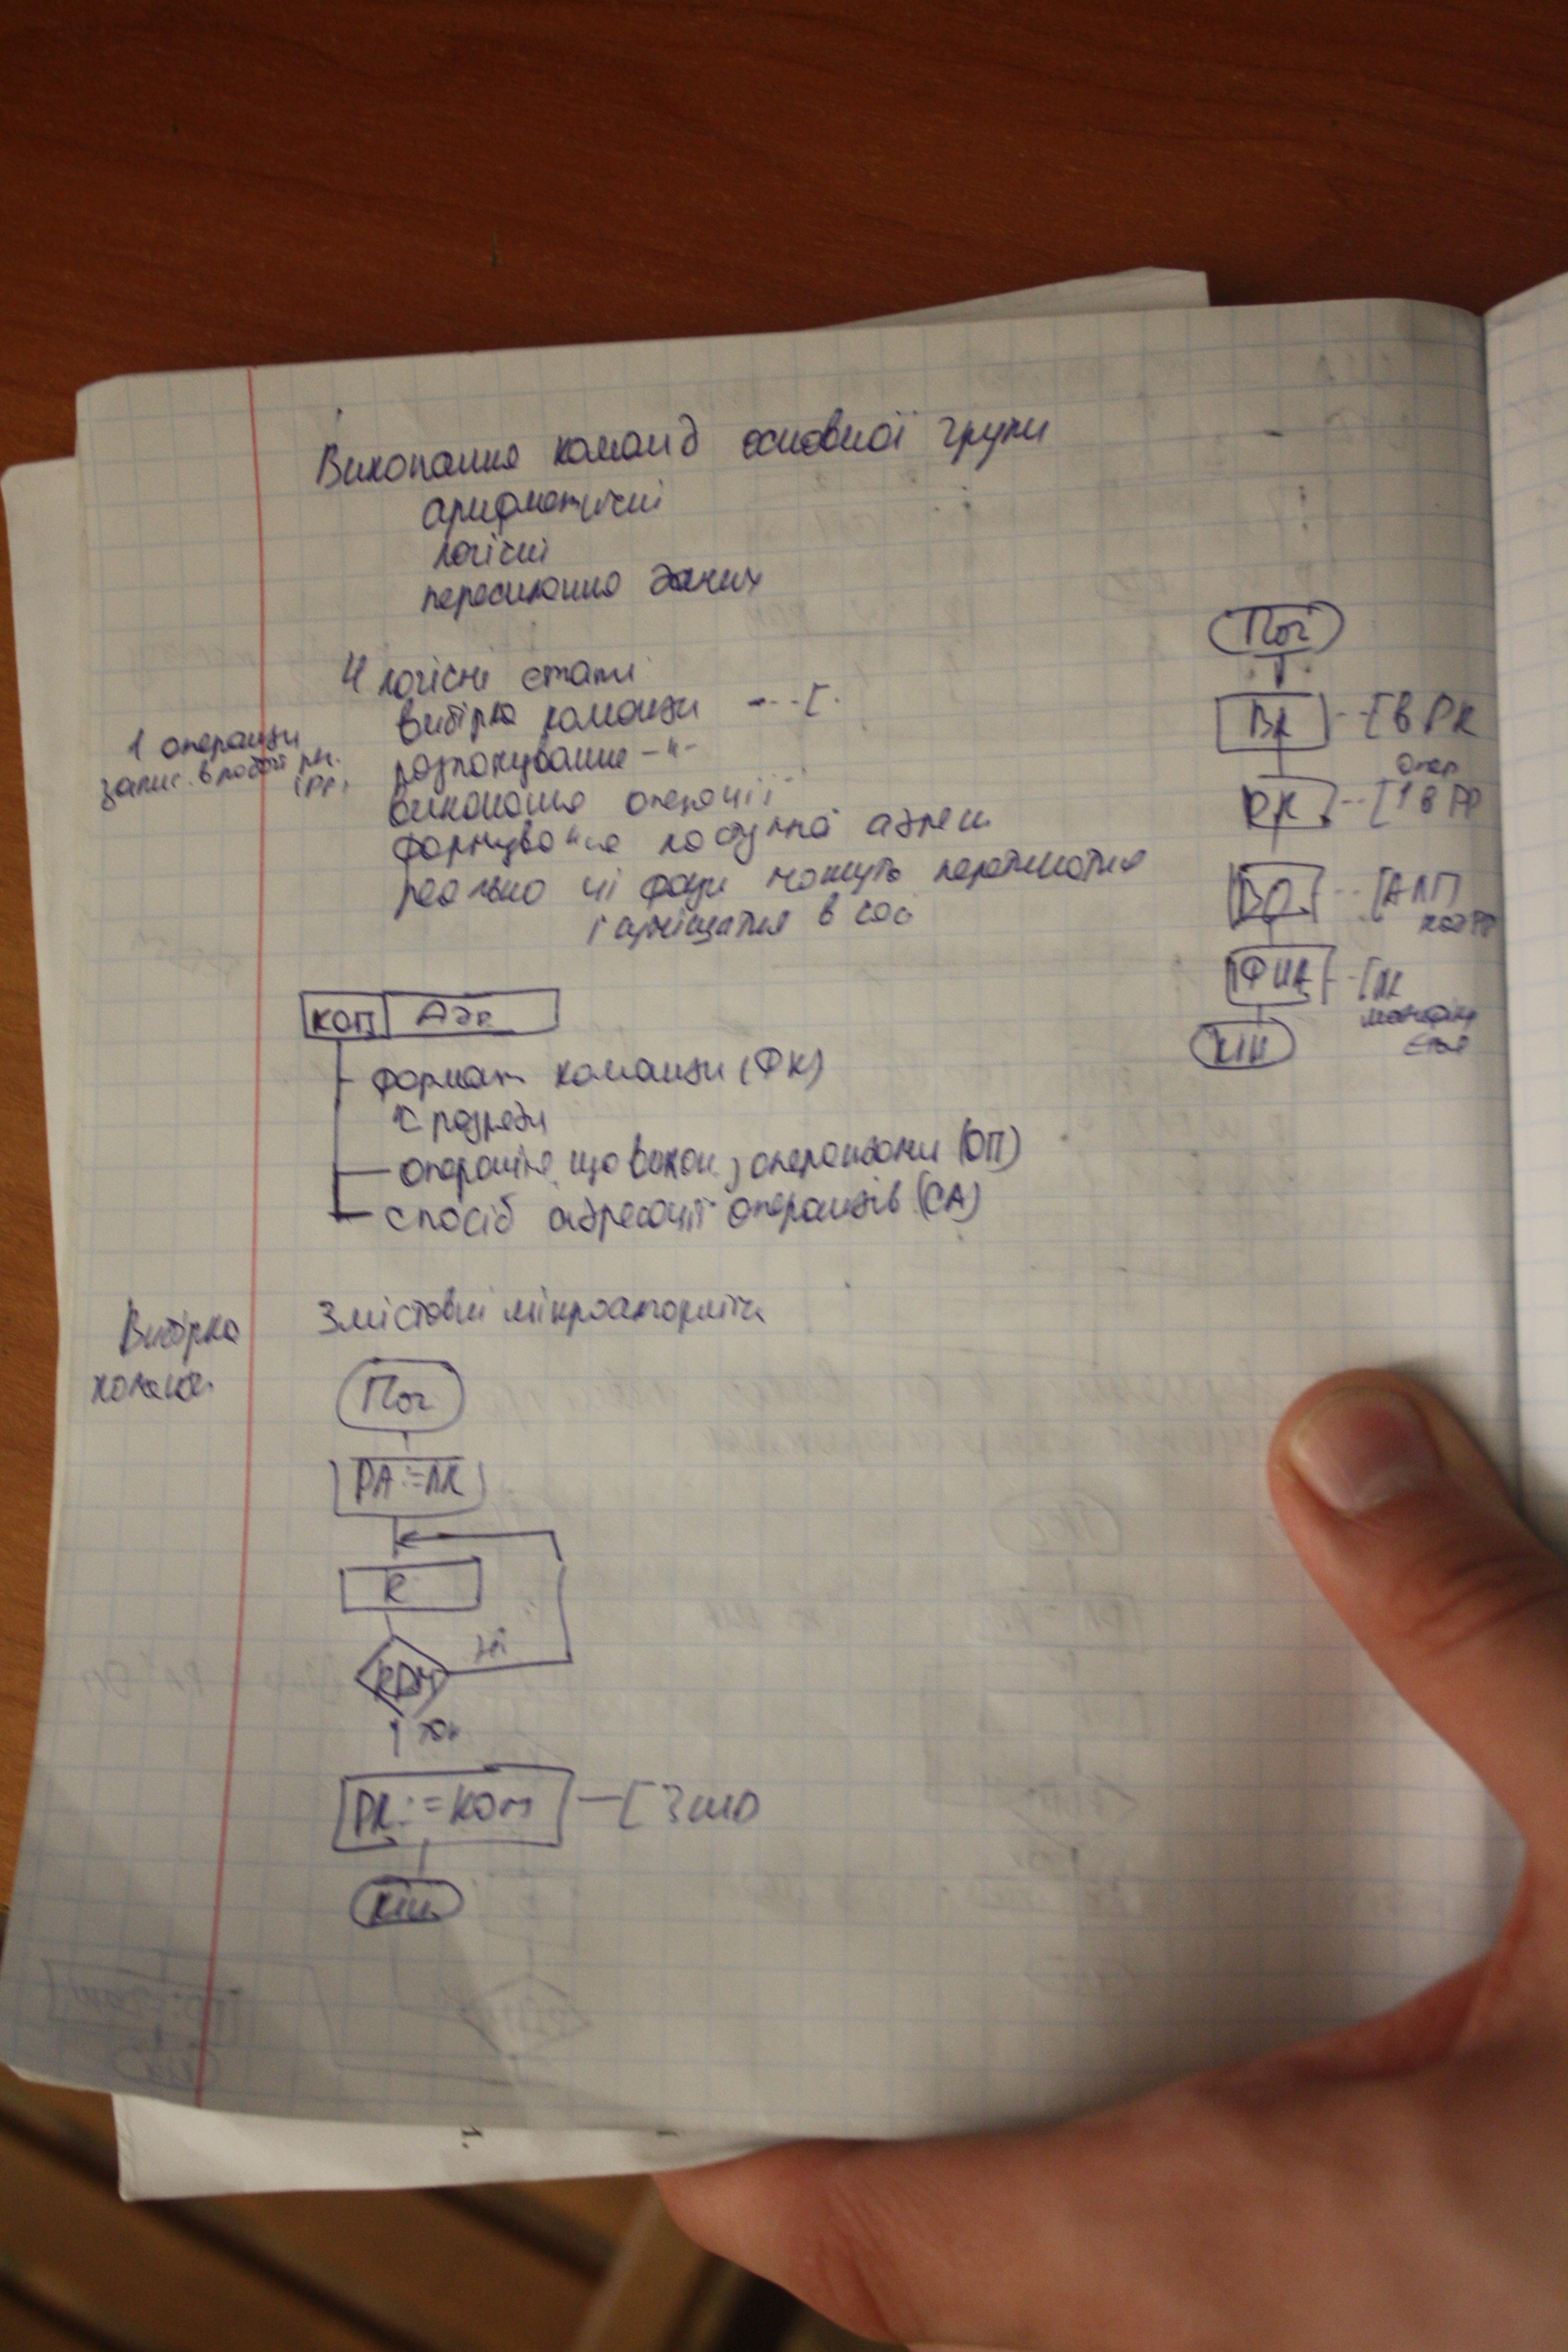 Виконання команд основної групи
арифметичні
логічні
пересилання даних
4 логічні етапи
вибірка команди
1 операнди
запис. в робочі рг.
(РГ)
розпакування -"-
виконання операції
формування наступної адреси
реально ці фази можуть перетинатися
і суміщатися в часі
Поч
ВК [в РК
опер
РК [1 в РР
ВО [АЛП
ФНА
Кін
КОП Адр
формат команди (ФК)
розряди
операція, що викон. з операндами (ОП)
спосіб адресації операндів (СА)
Вибірка
команд.
Змістовні мікроалгоритм
Поч
РА:=ЛК
ні
так
РК:=Ком
Кін